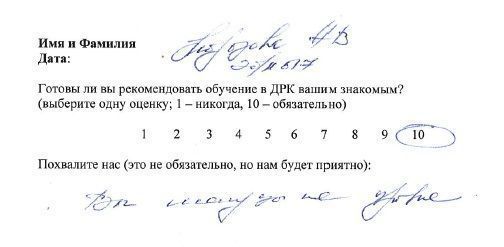 Имя и Фамилия
Дата:
Готовы ли вы рекомендовать обучение в ДРК вашим знакомым?
(выберите одну оценку; 1 – никогда, 10 – обязательно)
1 2 3 4 5 6 7 8 9 10
Похвалите нас (это не обязательно, но нам будет приятно):
Вы на